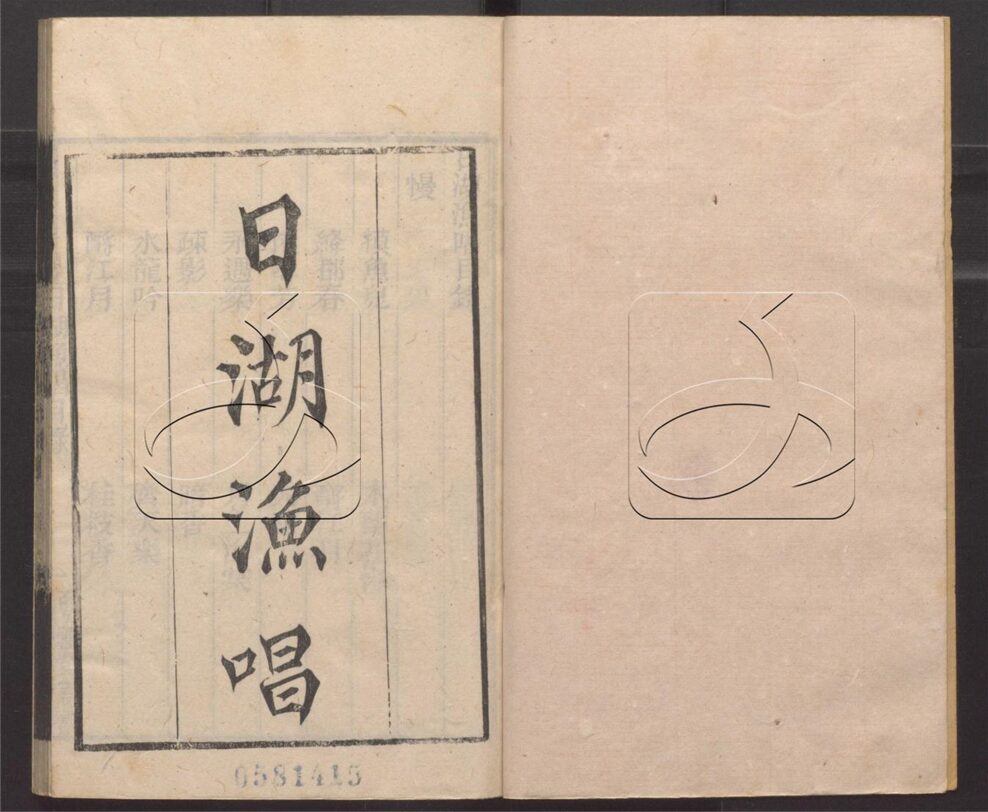 日湖漁唱
0581415